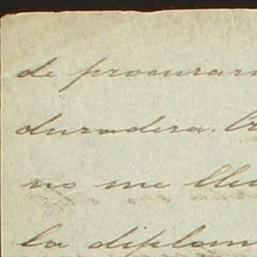 de procurar
duradera.
no me lle
la diplom